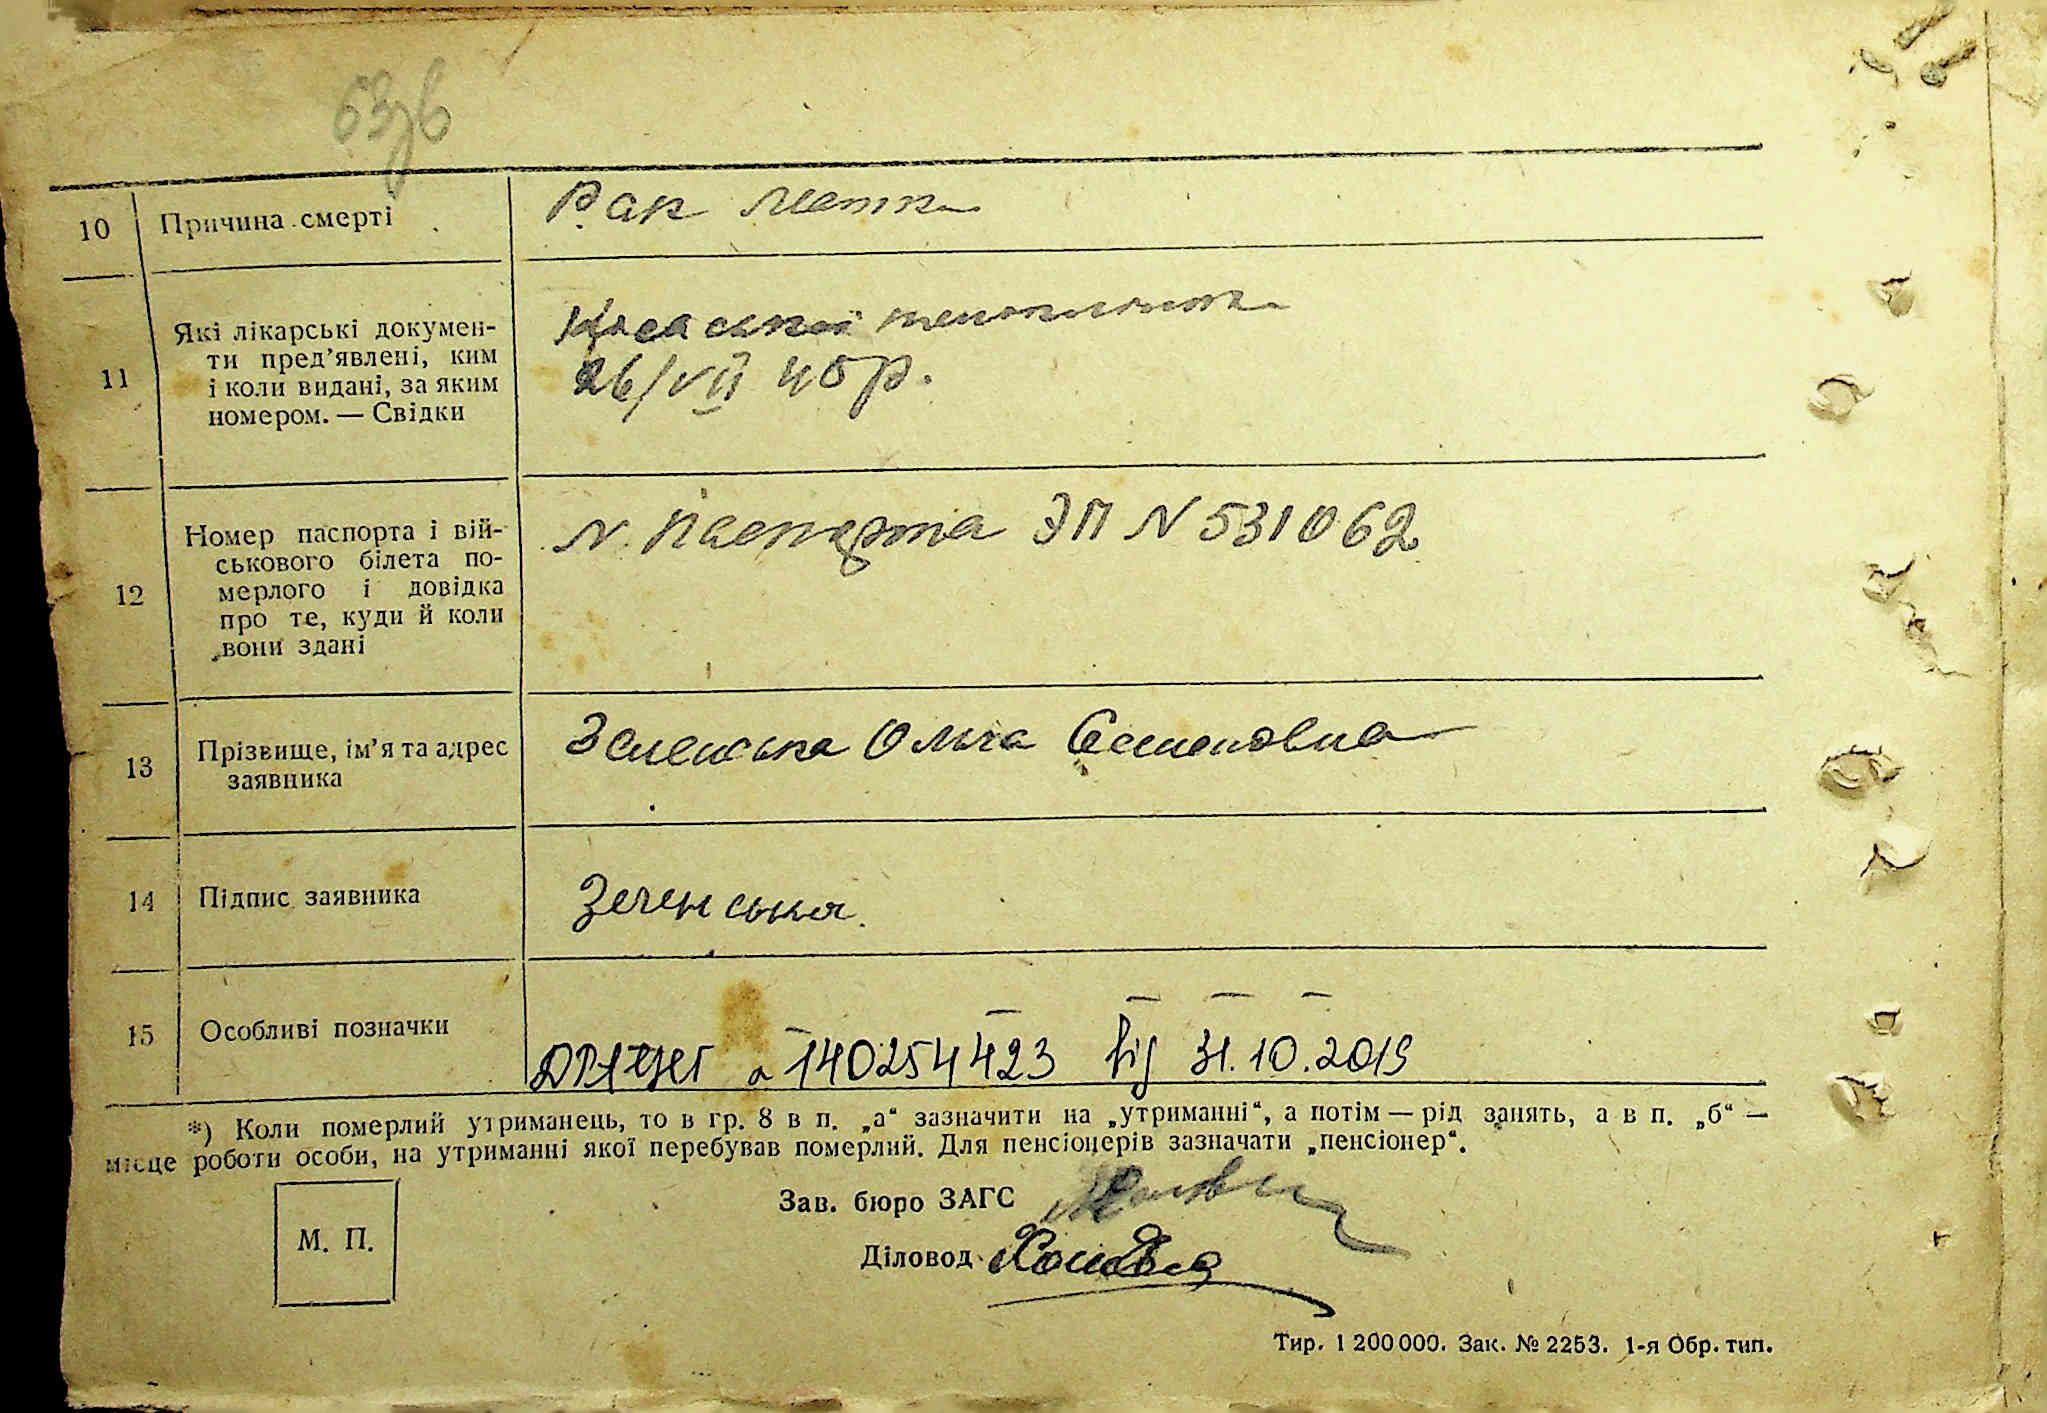 10 Причина смерті Рак матки
11 Які лікарські докумен-
ти пред’явлені, ким
і коли видані, за яким
номером. — Свідки
26/VII 40 р.
12 Номер паспорта і вій-
ськового білета по-
мерлого і довідка
про те, куди й коли
вони здані
N паспорта ЭП N 531062
13 Прізвище, ім’я та адрес
заявника
Зеленська Ольга Семеновна
14 Підпис заявника Зеленська
15 Особливі позначки
ДРАЦСГ а–140254423 від 31.10.2019
*) Коли померлий утриманець, то в гр. 8 в п. „а“ зазначити на „утриманні“, а потім — рід занять, а в п. „б“ —
місце роботи особи, на утриманні якої перебував померлий. Для пенсіонерів зазначати „пенсіонер“.
М. П.
Зав. бюро ЗАГС
Діловод
Тир. 1 200 000. Зак. № 2253. 1-я Обр. тип.